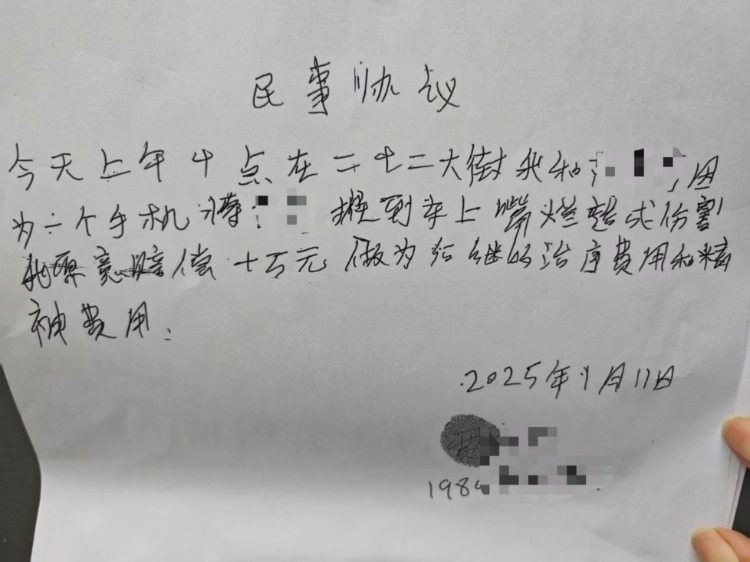 民事协议
今天上午十点在二七二大街我和 因
为一个手机将 摁到车上嘴烂造成伤害
我愿意赔偿十万元做为后继的治疗费用和精
神费用.
2025年1月11日
198